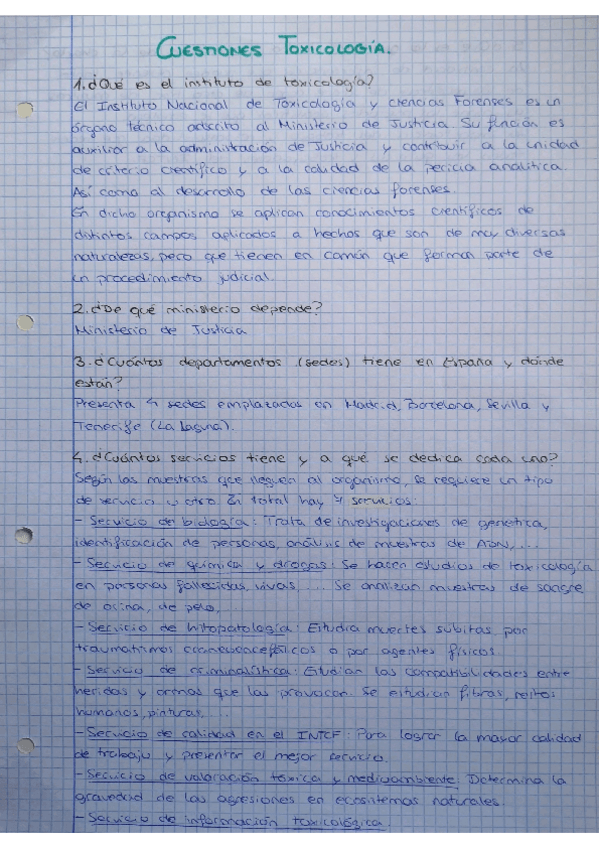 CUESTIONES TOXICOLOGÍA.
1. ¿Qué es el instituto de toxicología?
El Instituto Nacional de Toxicología y ciencias Forenses es un
órgano técnico adscrito al Ministerio de Justicia. Su función es
auxiliar a la administración de Justicia y contribuir a la unidad
de criterio científico y a la calidad de la pericia analítica.
Así como al desarrollo de las ciencias forenses.
En dicho organismo se aplican conocimientos científicos de
distintos campos aplicados a hechos que son de muy diversas
naturalezas, pero que tienen en común que forman parte de
un procedimiento judicial.
2. ¿De qué ministerio depende?
Ministerio de Justicia
3. ¿Cuántos departamentos (sedes) tiene en España y dónde
están?
Presenta 4 sedes emplazadas en Madrid, Barcelona, Sevilla y
Tenerife (La Laguna).
4. ¿Cuántos servicios tiene y a qué se dedica cada uno?
Según las muestras que lleguen al organismo, se requiere un tipo
de servicio u otro. En total hay 7 servicios:
- Servicio de biología: Trata de investigaciones de genética,
identificación de personas, análisis de muestras de ADN,...
- Servicio de química y drogas: Se hacen estudios de toxicología
en personas fallecidas, vivas,... Se analizan muestras de sangre
de orina, de pelo,...
- Servicio de hitopatología: Estudia muertes subitas, por
traumatismos craneoencefálicos o por agentes físicos.
- Servicio de criminalística: Estudian las compatibilidades entre
heridas y armas que las provocan. Se estudian fibras, restos
humanos, pinturas,...
- Servicio de calidad en el INTCF: Para lograr la mayor calidad
de trabajo y presentar el mejor servicio.
- Servicio de valoración tóxica y medioambiente: Determina la
gravedad de las agresiones en ecosistemas naturales.
- Servicio de información toxicológica.